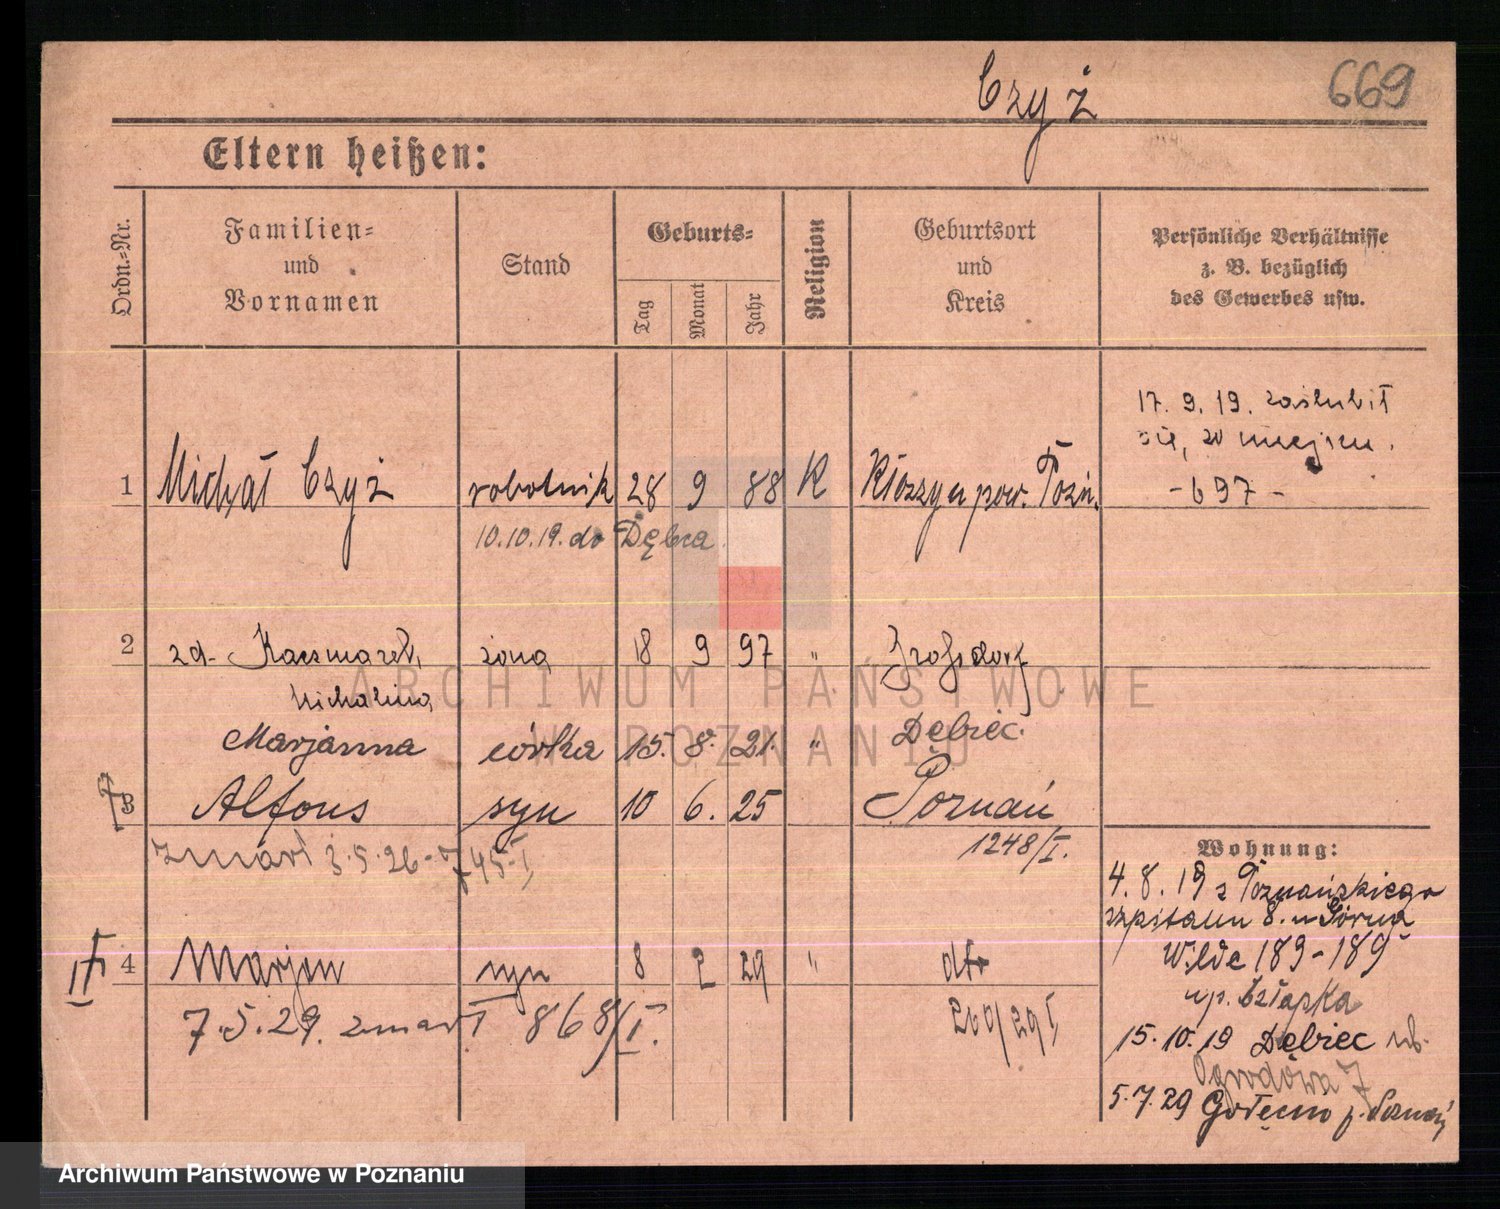 Czyż
669
Eltern heißen:
Ordn.-Nr.
Familien- und Vornamen
Stand
Geburts-
Tag
Monat
Jahr
Religion
Geburtsort und Kreis
Persönliche Verhältnisse z. B. bezüglich des Gewerbes usw.
17. 9. 19. zaślubił
się, w miejscu.
- 697 -
1 Michał Czyż robotnik 28 9 88 K pow. Pozn.
10.10.19. do Dębca
2 zd. Kaczmarek, żona 18 9 97 "
Michalina
Marjanna córka 15. 8. 21. " Dębiec.
3 Alfons syn 10 6. 25 " Poznań
1248/I.
zmarł 3.5.26 - 745-I
Wohnung:
4. 8. 19 z Poznańskiego
szpitalu Górna
Wilde 189 - 189
up. Człapka
4 Marjan syn 8 2 29 " dto
7.5.29. zmarł 868/I.
210/29 I
15.10.19 Dębiec ul.
Ogrodowa 7
5.7.29 Golęcin p. Poznań
ARCHIWUM PAŃSTWOWE
W POZNANIU
Archiwum Państwowe w Poznaniu